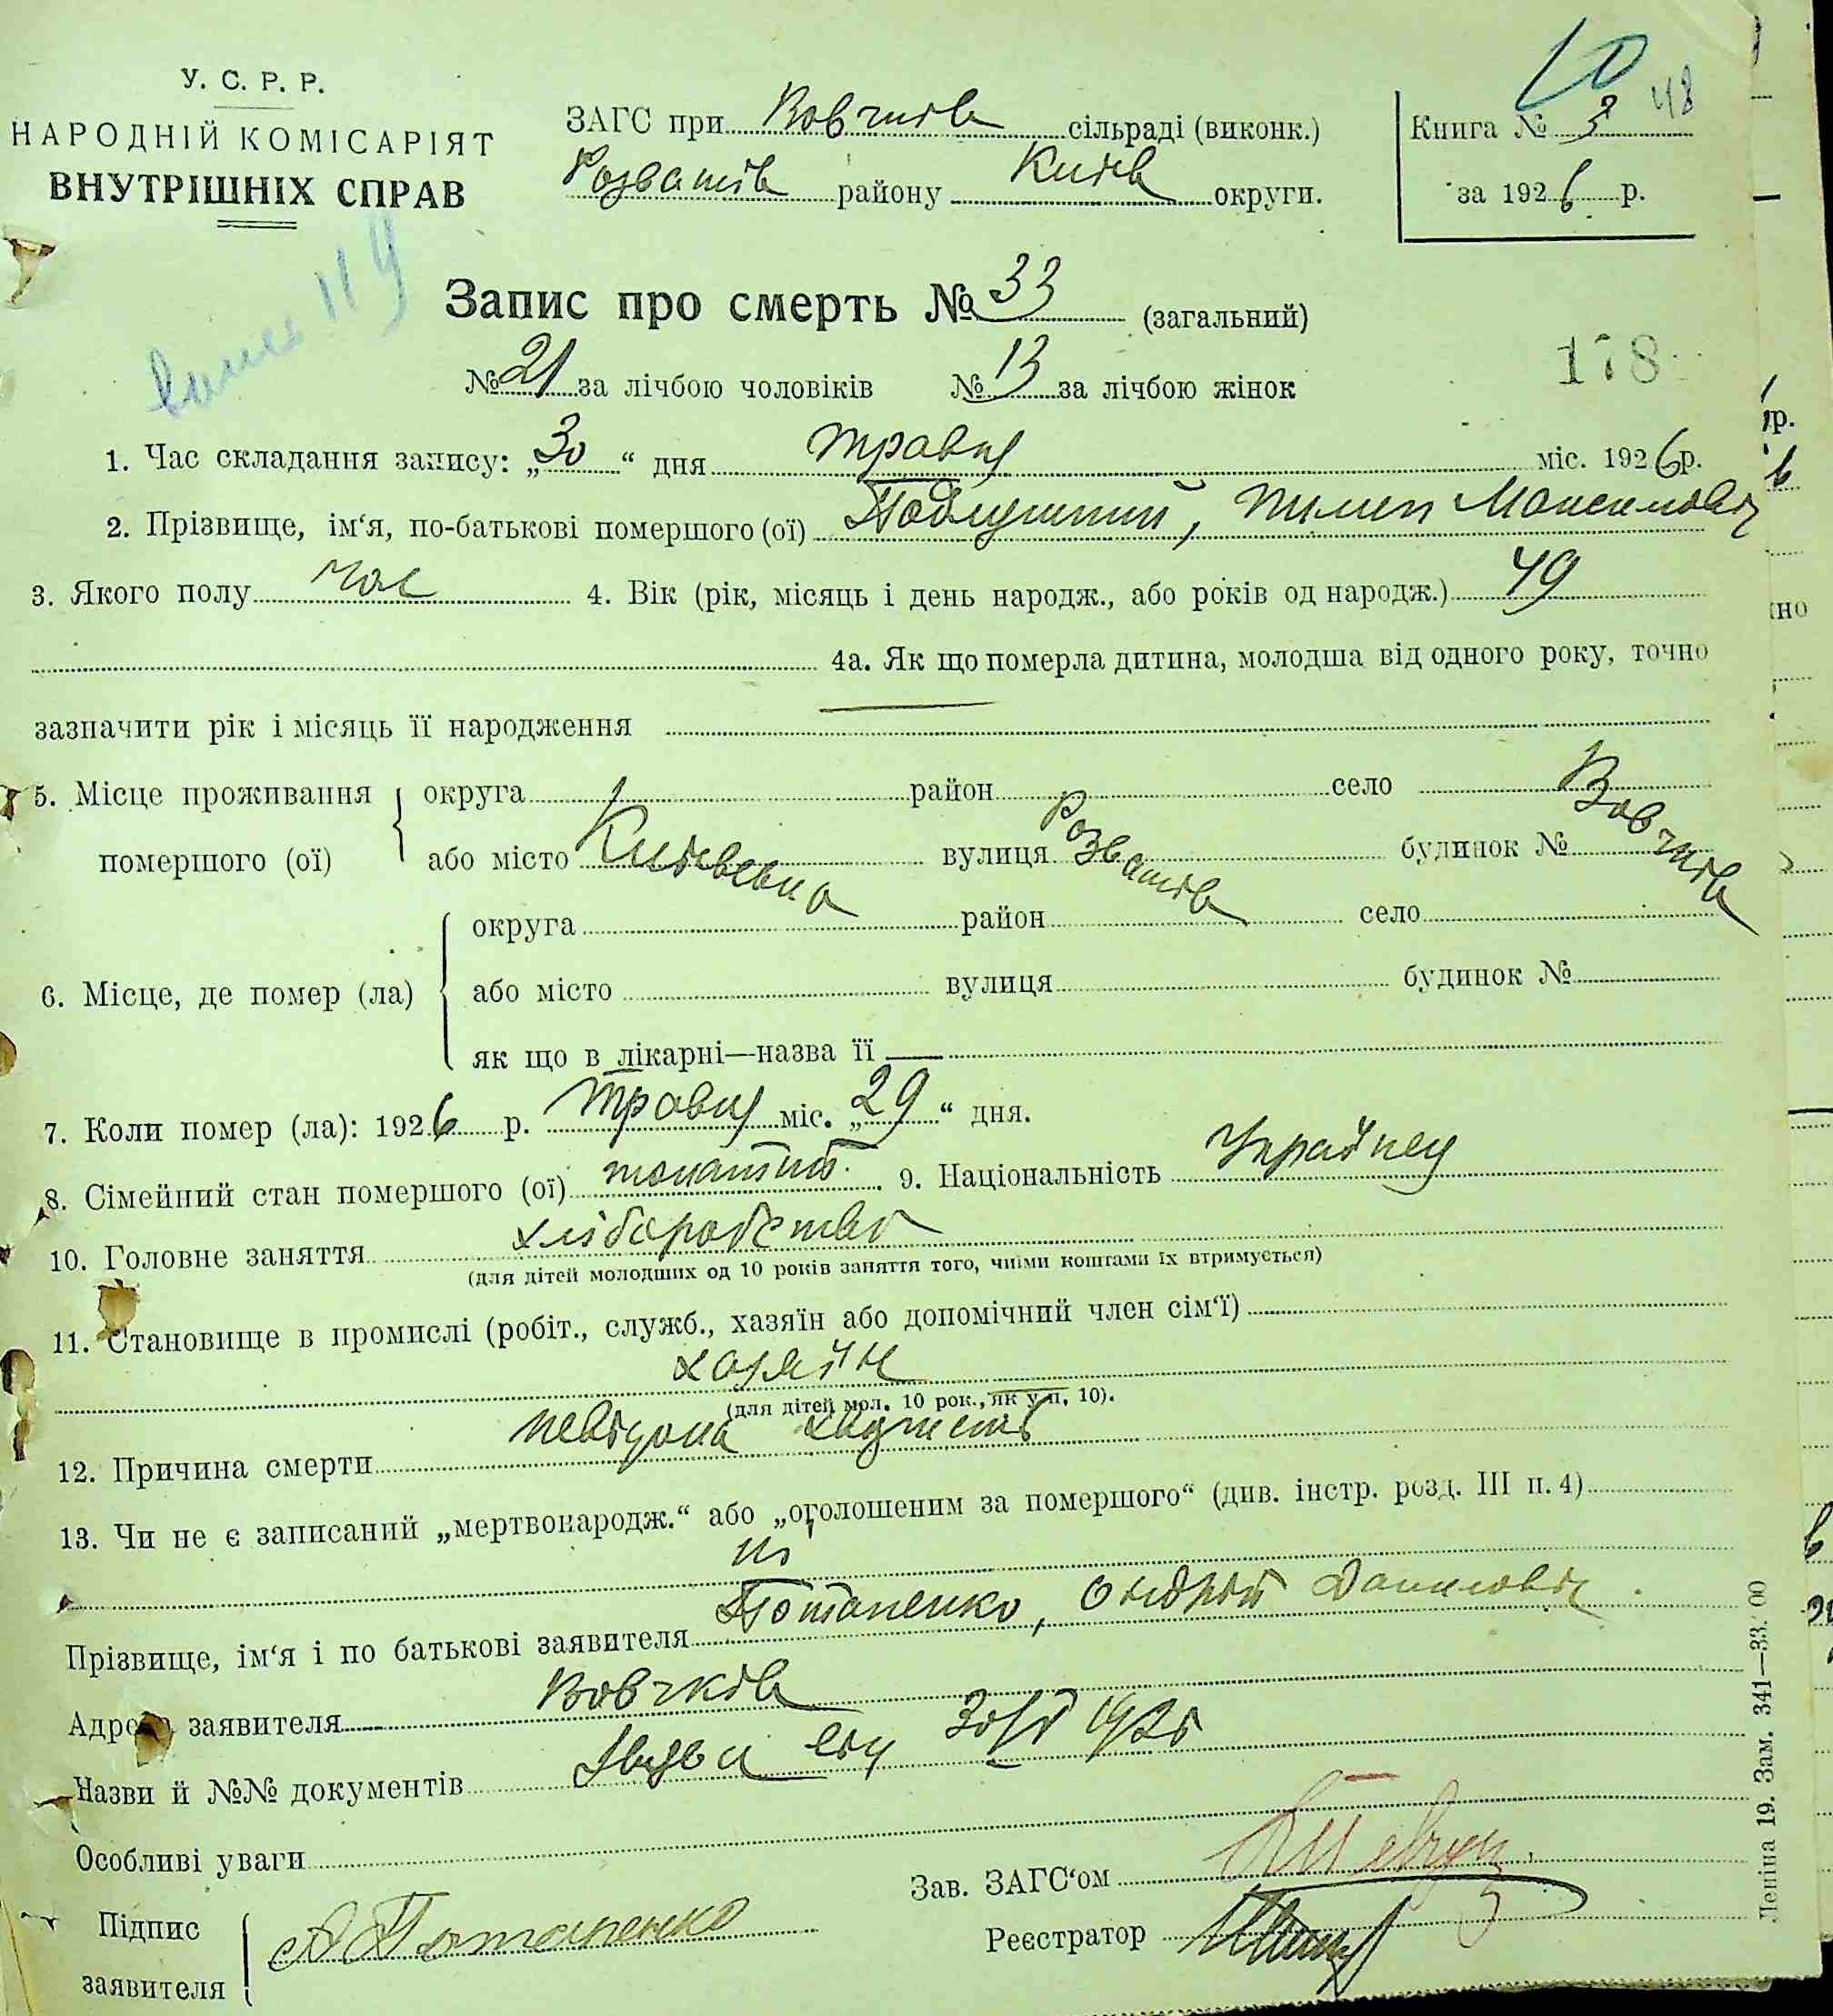 У. С. Р. Р.
НАРОДНІЙ КОМІСАРІЯТ
ВНУТРІШНІХ СПРАВ
ЗАГС при Вовчків сільраді (виконк.)
Розважів району Київ округи.
10
48
Книга № 3
за 1926 р.
119
Запис про смерть № 33 (загальний)
№ 21 за лічбою чоловіків № 13 за лічбою жінок
178
1. Час складання запису: „30“ дня травня міс. 1926 р.
2. Прізвище, ім‘я, по-батькові помершого (ої) Пилип Максимович
3. Якого полу чол 4. Вік (рік, місяць і день народж., або років од народж.) 49
4а. Як що померла дитина, молодша від одного року, точно
зазначити рік і місяць її народження —
5. Місце проживання помершого (ої)
округа район село
або місто Київська вулиця Розважів будинок № Вовчків
6. Місце, де помер (ла)
округа район село
або місто вулиця будинок №
як що в лікарні—назва її —
7. Коли помер (ла): 1926 р. травня міс. „29“ дня.
8. Сімейний стан помершого (ої) 9. Національність Українец
10. Головне заняття хліборобство
(для дітей молодших од 10 років заняття того, чиїми коштами їх втримується)
11. Становище в промислі (робіт., служб., хазяїн або допомічний член сім‘ї)
хазяїн
(для дітей мол. 10 рок., як у п. 10).
12. Причина смерти невідома
13. Чи не є записаний „мертвонародж.“ або „оголошеним за помершого“ (див. інстр. розд. III п. 4)
ні
Прізвище, ім‘я і по батькові заявителя Потапенко, Андрій Данилович
Адреса заявителя Вовчків
Назви й №№ документів
Особливі уваги
Зав. ЗАГС‘ом
Підпис заявителя А Потапенко
Реєстратор
Леніна 19. Зам. 341—33.